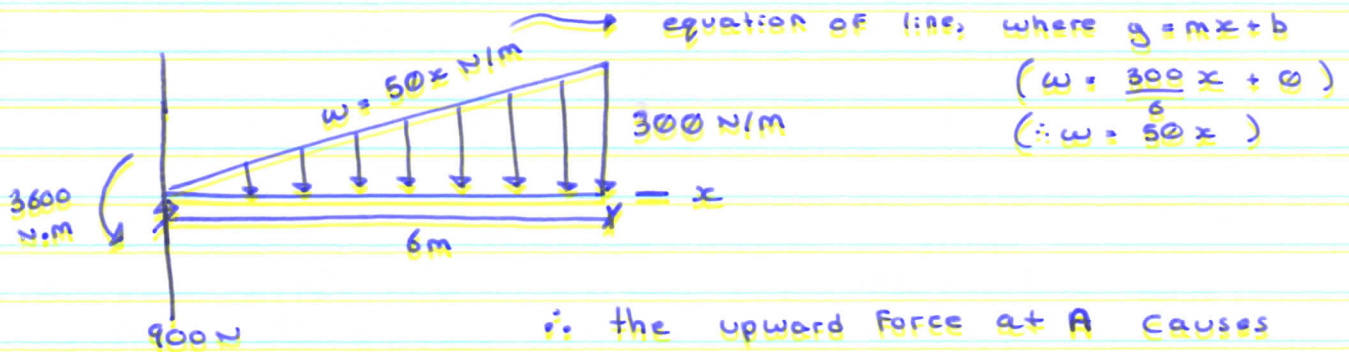 equation of line, where y = mx + b
w = 50x N/m
(w = 300/6 x + 0)
300 N/m
(∴ w = 50x)
3600 N·m
x
6m
900N
∴ the upward force at A causes